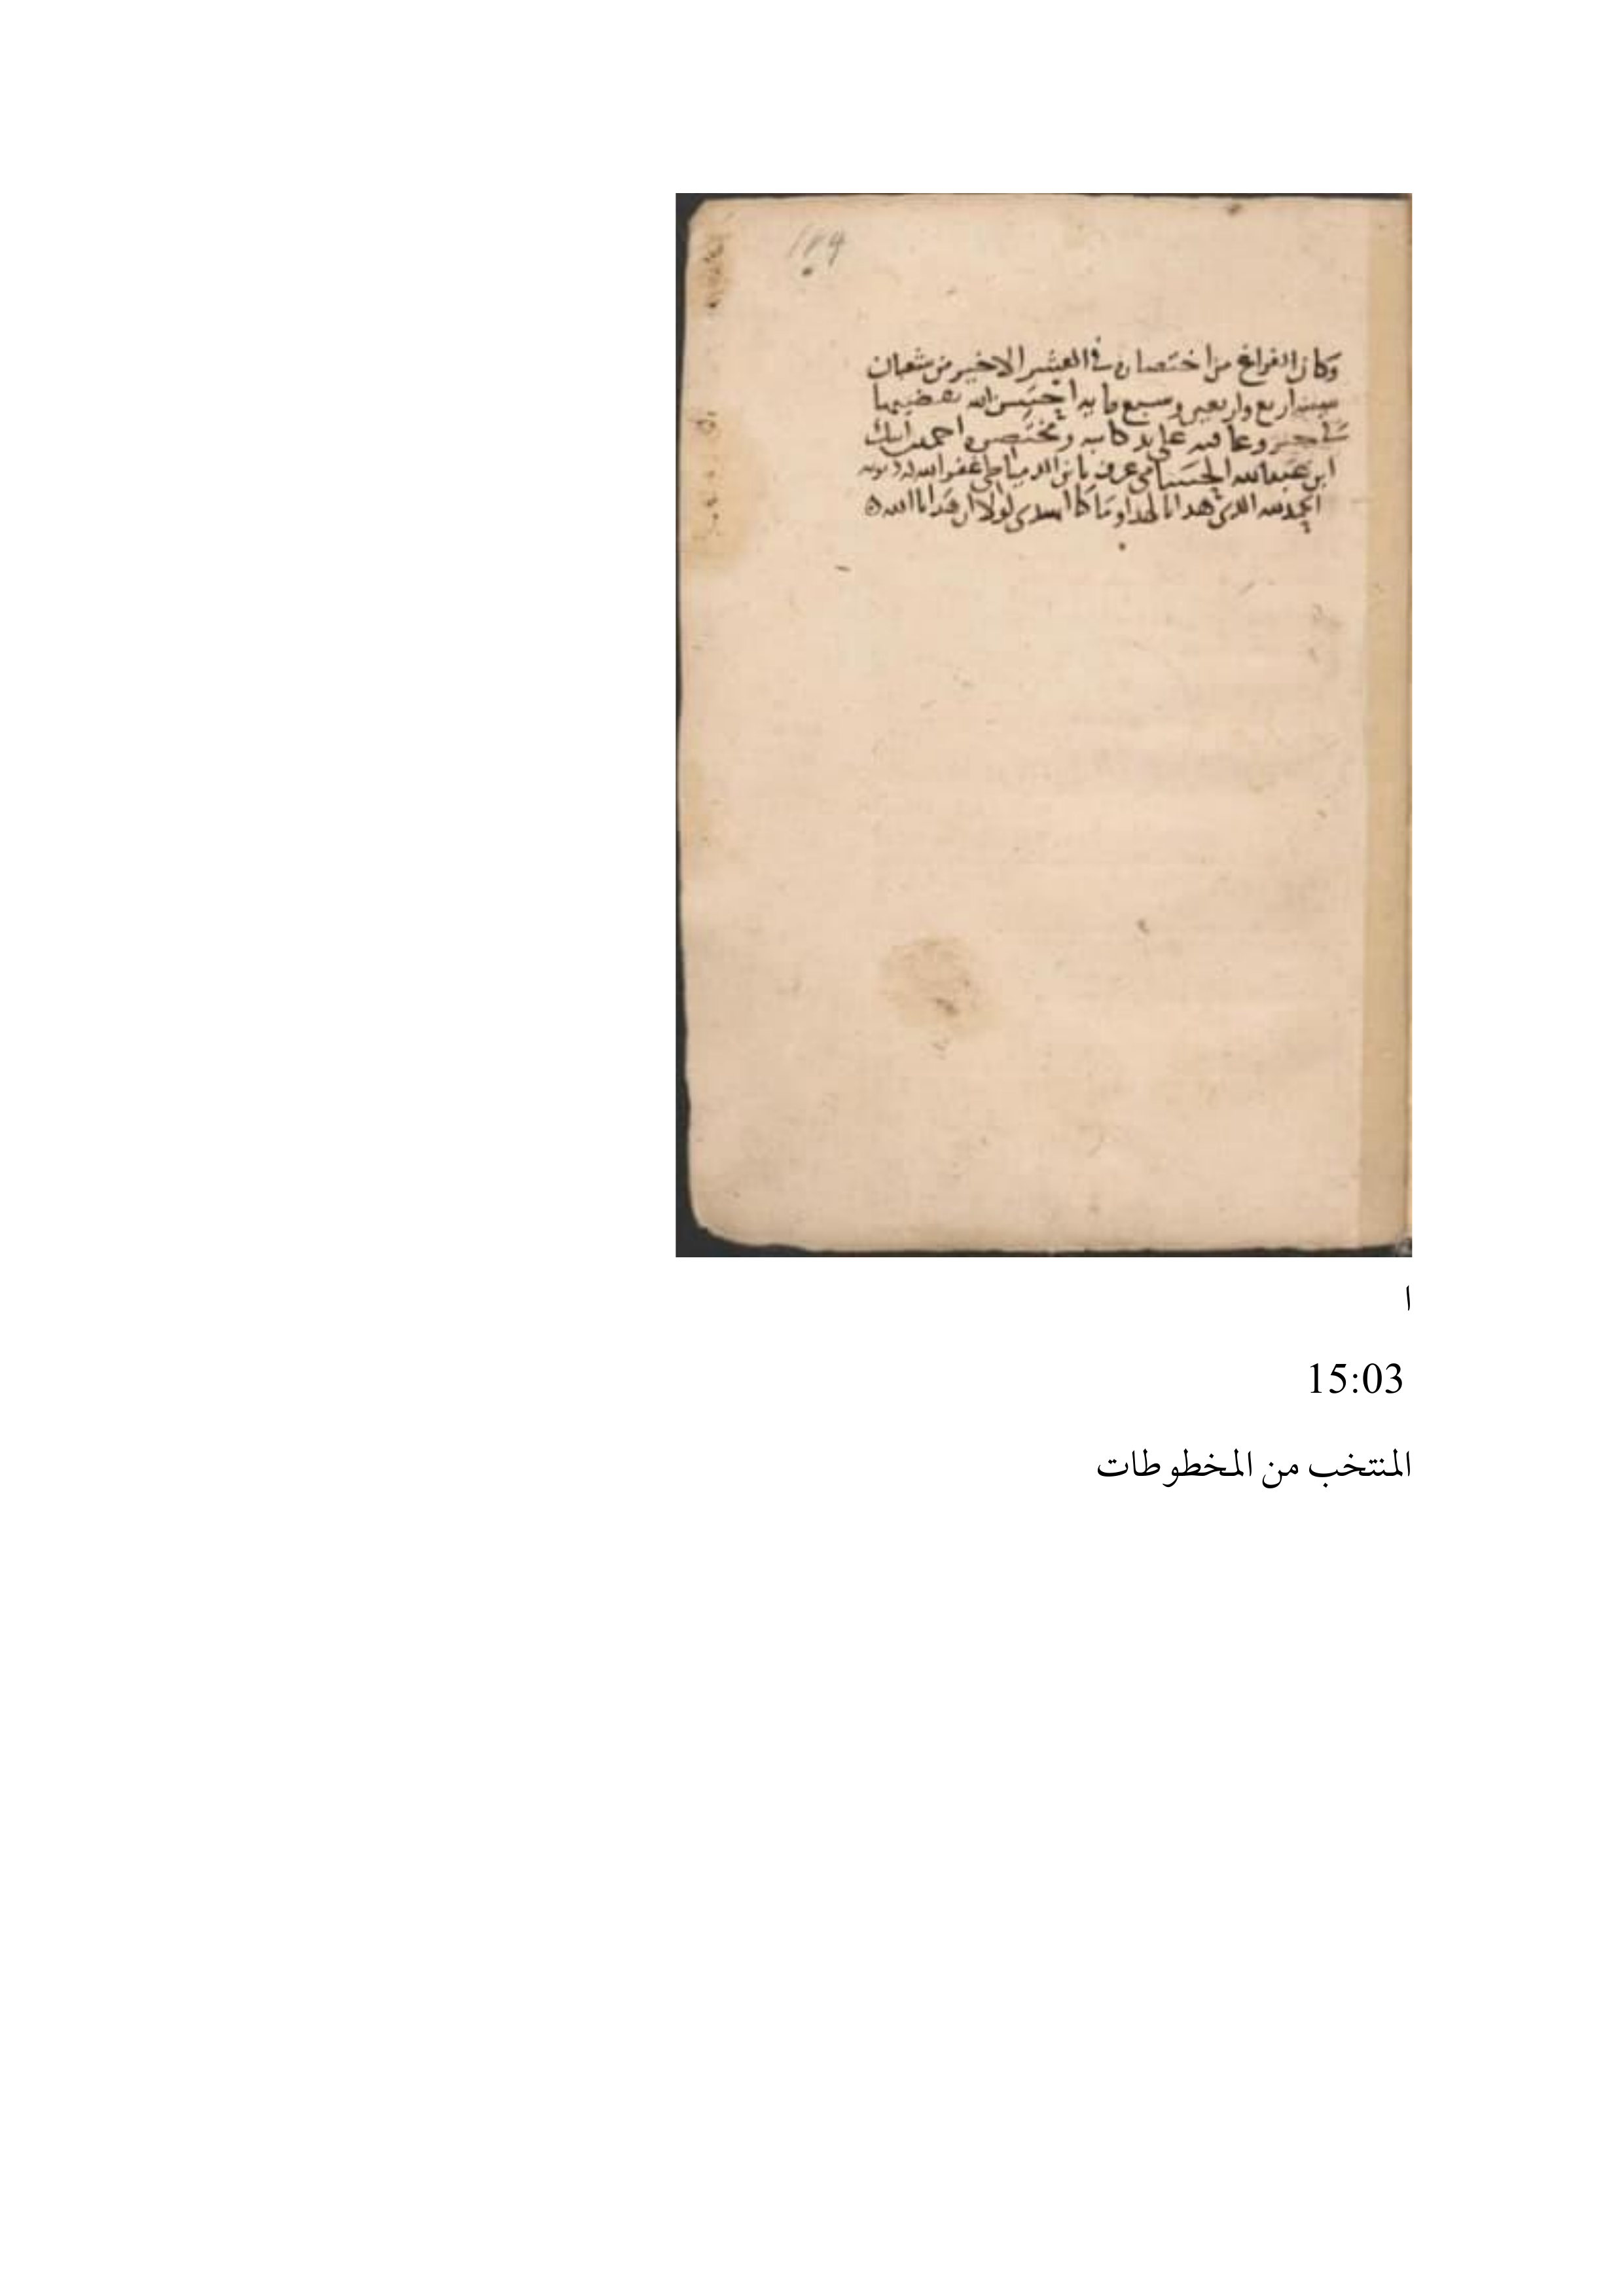 184
وكان الفراغ من اختصاره في العشر الاخير من شعبان
سنه اربع واربعين وسبع مايه احسن الله تقضيها
في خير وعافيه على يد كاتبه ومختصره احمد بن ايبك
ابن عبد الله الحسامي عرف بابن الدمياطي غفر الله له ذنوبه
الحمد لله الذي هدانا لهذا وما كنا لنهتدي لولا ان هدانا الله
ا
15:03
المنتخب من المخطوطات